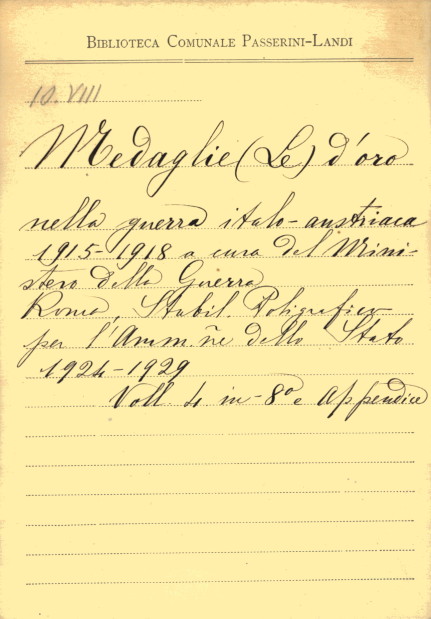 BIBLIOTECA COMUNALE PASSERINI-LANDI
10.VIII
Medaglie (Le) d'oro
nella guerra italo-austriaca
1915-1918 a cura del Mini-
stero della Guerra
Roma, Stabil. Poligrafico
per l'Amm.ñe dello Stato
1924-1929
Voll. 4 in-8º e Appendice